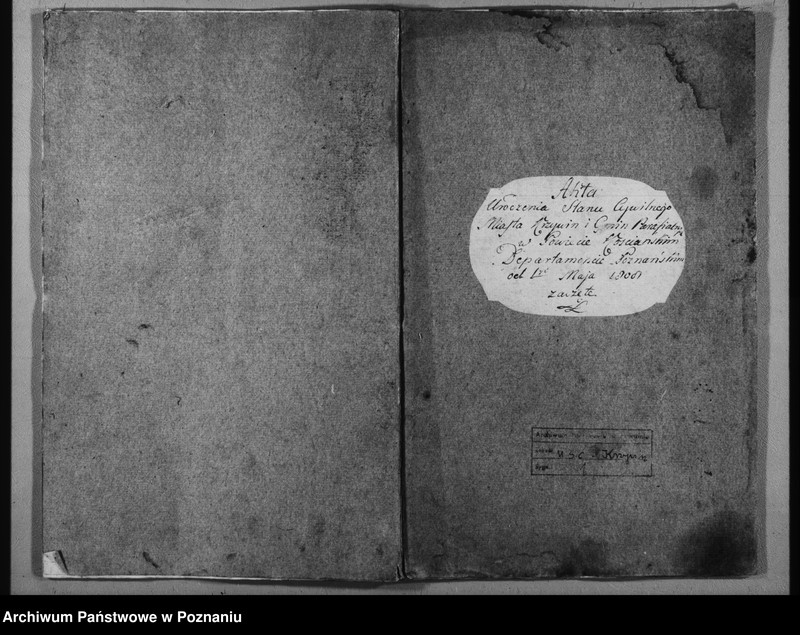 Akta
Urodzenia Stanu Cywilnego
Miasta Krzywin i Gmin
w Powiecie Kościańskim
Departamencie Poznańskim
od 1go Maja 1808
zaczęte
USC Krzywiń
1
Archiwum Państwowe w Poznaniu